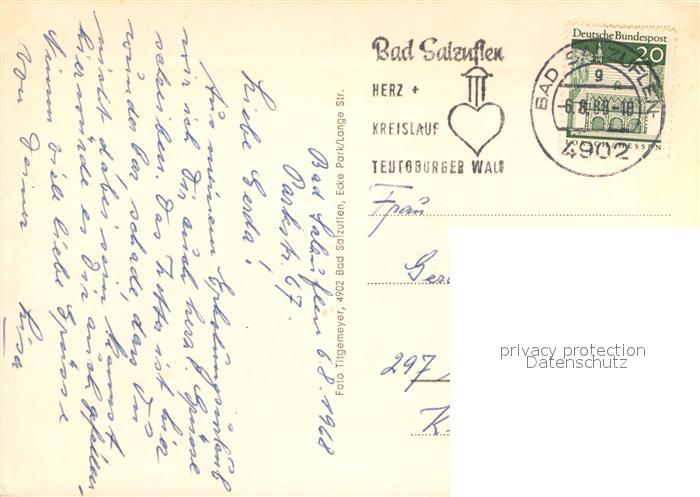 Bad Salzuflen
HERZ +
KREISLAUF
TEUTOBURGER WALD
Deutsche Bundespost
20
BAD SALZUFLEN
g
-6.8.68-18
4902
LORSCH/HESSEN
Bad Salzuflen 6.8.1968
Parkstr. 67.
Liebe Gerda!
Aus meinem Erholungsurlaub
will ich Dir auch herzl. Grüsse
schreiben. Das Wetter ist hier
wunderbar, schade, dass Du
nicht dabei sein kannst
hier würde es Dir auch gefallen.
Nimm viele liebe Grüsse
von Deiner Lisa
Foto Titgemeyer, 4902 Bad Salzuflen, Ecke Park/Lange Str.
Frau
297
privacy protection
Datenschutz